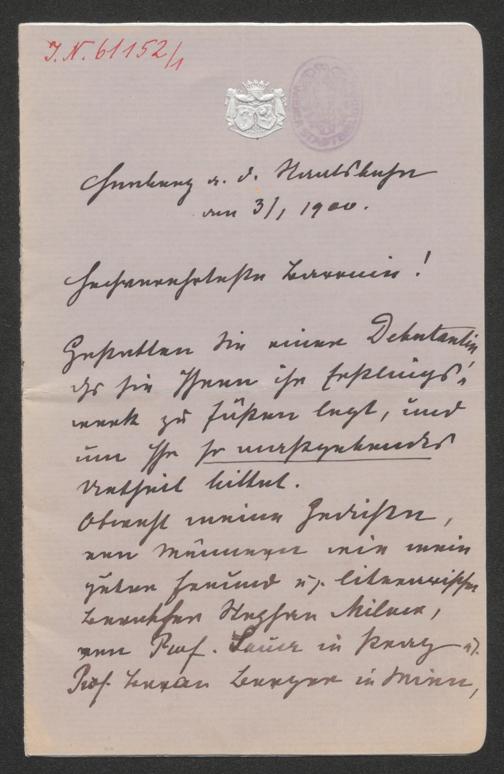 J.N. 61152/1
a. d. Staatsbahn
den 3/1 1900.
Hochverehrteste Baronin!
Gestatten Sie einer Debutantin,
daß sie Ihnen ihr Erstlings-
werk zu Füßen legt, und
um Ihr so maßgebendes
Urtheil bittet.
Obwohl meine Gedichte,
von Männern wie mein
guter Freund u. literarischer
Berather Stephan Milow,
von Prof. Sauer in Prag u.
Prof. Baron Berger in Wien,